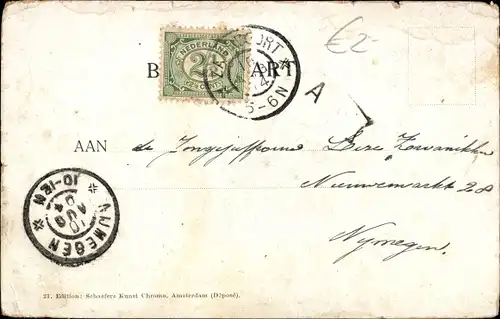 €2-
NEDERLAND
2½
CENT
5-6N
A
AAN de Jongejuffrouw
Nieuwemarkt 28
Nijmegen.
NIJMEGEN
10-12V
10 AUG
21. Edition: Schaefers Kunst Chromo, Amsterdam (Déposé).